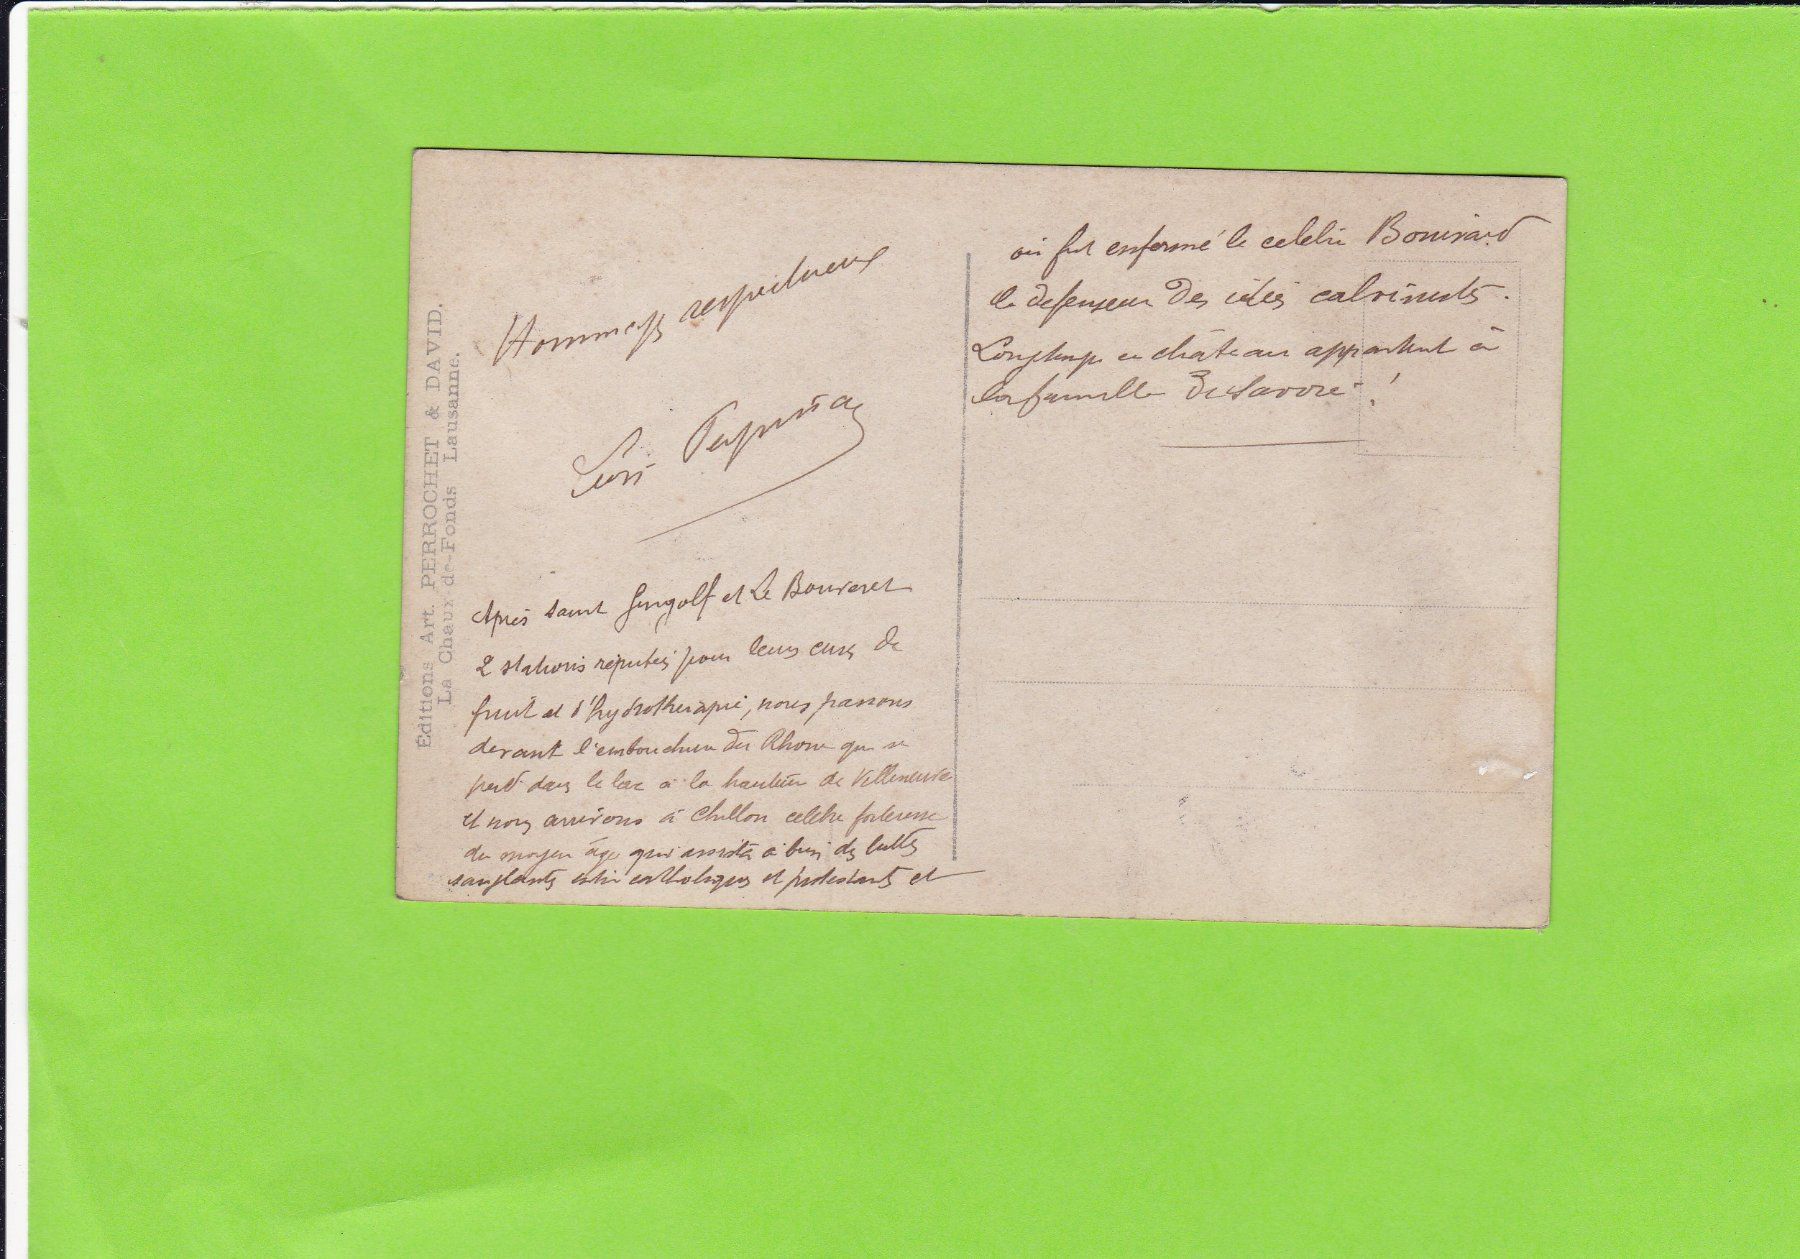 Éditions Art. PERROCHET & DAVID.
La Chaux-de-Fonds Lausanne.
Hommages respectueux
Après Saint Gingolf et Le Bouveret
2 stations réputées pour leurs cures de
fruit et d'hydrothérapie, nous passons
devant l'embouchure du Rhone qui se
perd dans le lac à la hauteur de Villeneuve
et nous arrivons à Chillon celebre forteresse
du moyen âge qui assista à bien des luttes
sanglantes entre catholiques et protestants et
où fut enfermé le celebre Bonivard
le defenseur des idées calvinistes.
Longtemps ce château appartient à
la famille de Savoie !